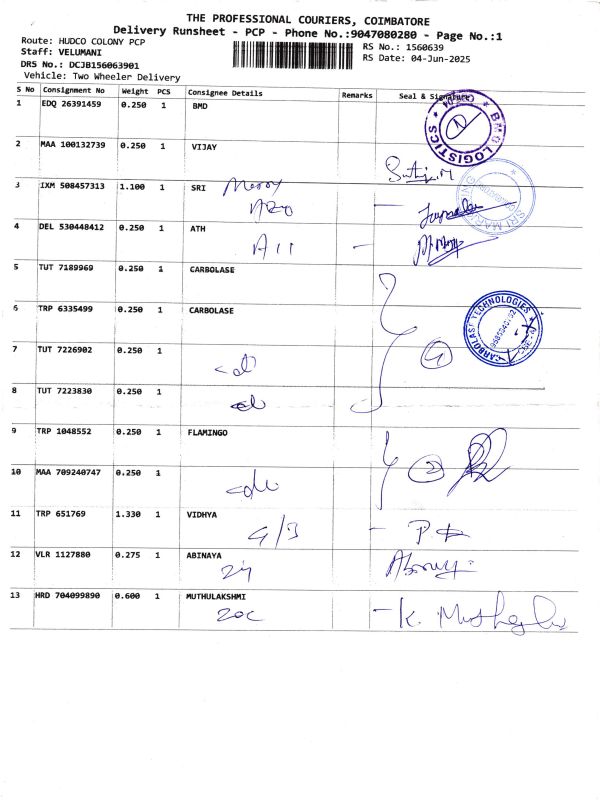 THE PROFESSIONAL COURIERS, COIMBATORE
Delivery Runsheet - PCP - Phone No.:9047080280 - Page No.:1
Route: HUDCO COLONY PCP
RS No.: 1560639
Staff: VELUMANI
RS Date: 04-Jun-2025
DRS No.: DCJB156063901
Vehicle: Two Wheeler Delivery
S No Consignment No Weight PCS Consignee Details Remarks Seal & Signature
1 EDQ 26391459 0.250 1 BMD
BMD LOGISTICS
2 MAA 100132739 0.250 1 VIJAY
3 IXM 508457313 1.100 1 SRI
SRI
4 DEL 530448412 0.250 1 ATH
A11
5 TUT 7189969 0.250 1 CARBOLASE
6 TRP 6335499 0.250 1 CARBOLASE
CARBOLASE TECHNOLOGIES
7 TUT 7226902 0.250 1
4
8 TUT 7223830 0.250 1
9 TRP 1048552 0.250 1 FLAMINGO
2
10 MAA 709240747 0.250 1
11 TRP 651769 1.330 1 VIDHYA
G/3
12 VLR 1127880 0.275 1 ABINAYA
13 HRD 704099890 0.600 1 MUTHULAKSHMI